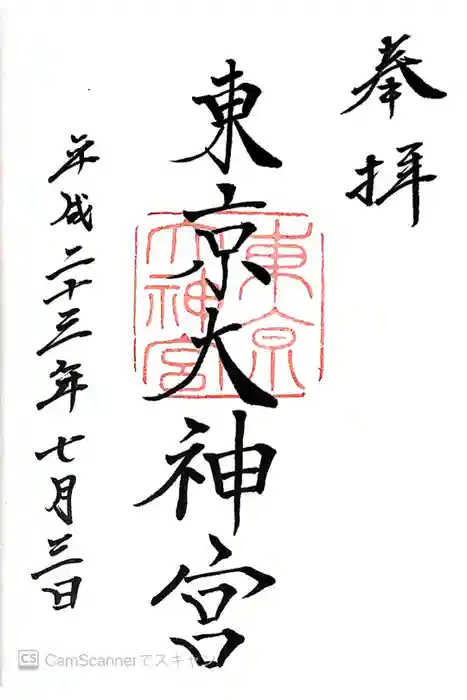 奉拝
東京大神宮
東京
大神宮
平成二十三年七月三日
CS CamScannerでスキャン